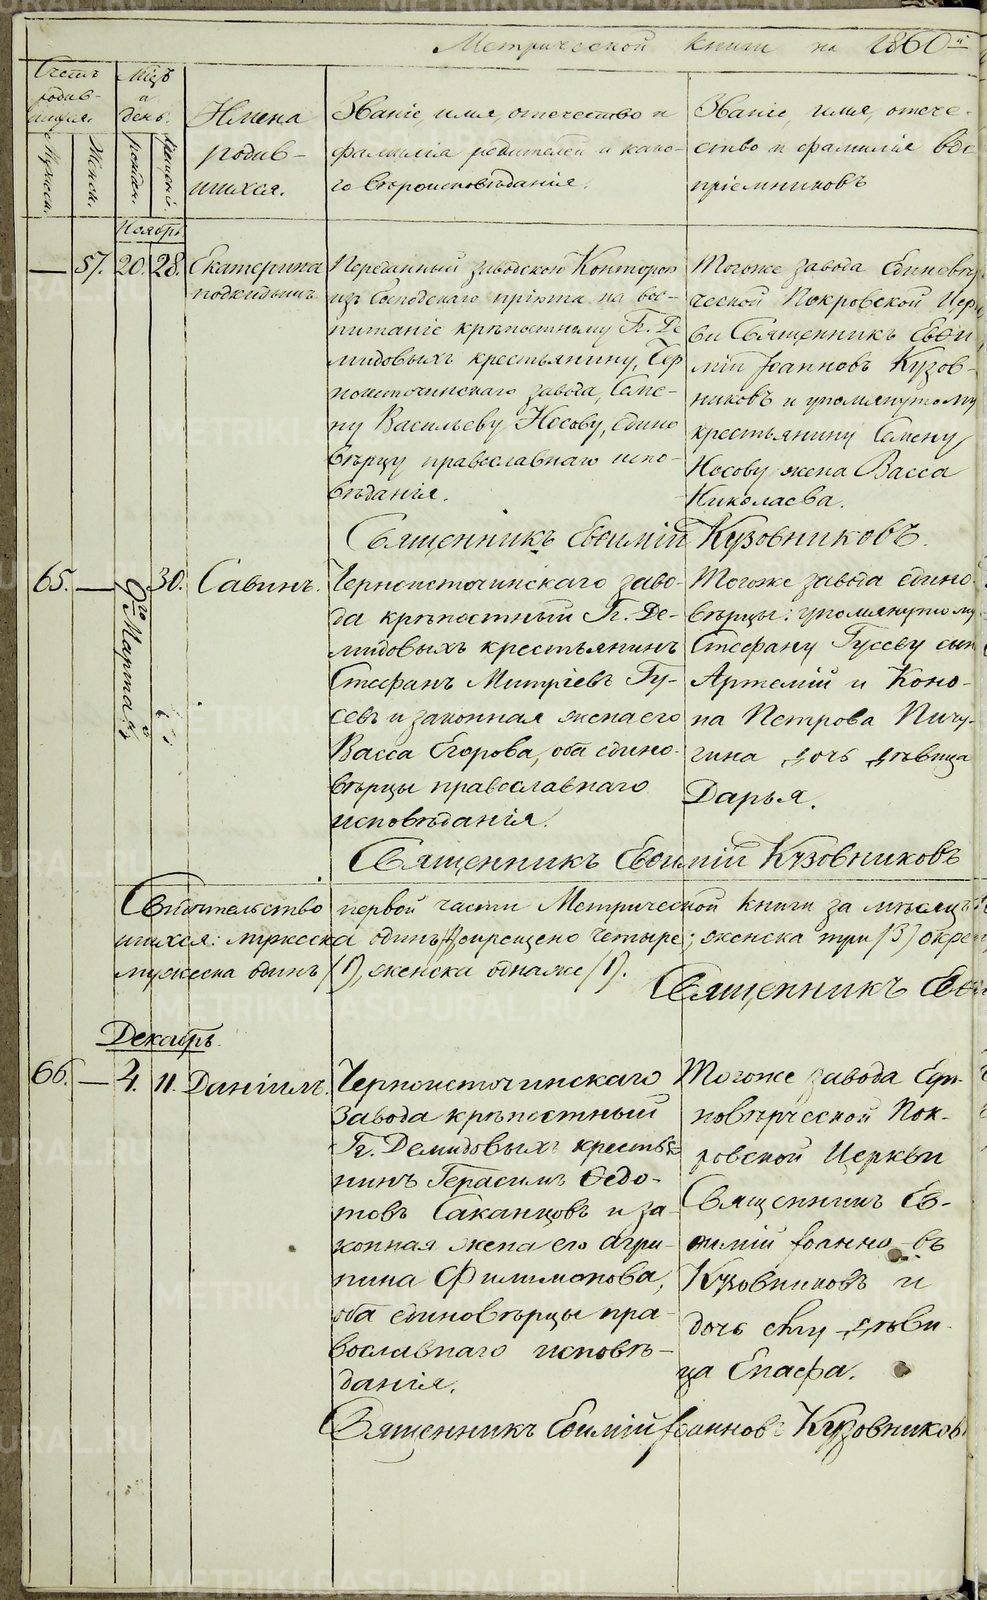 Метрической книги на 1860й
Счетъ родив-шихся.
Мужеска.
Женска.
Мѣцъ и день.
рожден.
крещенія.
Имена
родив-
шихся.
Званіе, имя, отечество и
фамилія родителей и како-
го вѣроисповѣданія.
Званіе, имя, отече-
ство и фамилія вос
пріемниковъ
Ноябрь
— 57. 20. 28. Екатерина
подкидышъ
Переданный заводской Конторою
изъ Господскаго пріюта на вос-
питаніе крѣпостному Гг. Де
мидовыхъ крестьянину, Чер
ноисточинскаго завода, Семе-
ну Васильеву Носову, едино
вѣрцу православнаго испо-
вѣданія.
Тогоже завода Единовѣр
ческой Покровской Церк
ви Священникъ Евѳи
мій Іоанновъ Кузов-
никовъ и упомянутому
крестьянину Семену
Носову жена Васса
Николаева.
Священникъ Евѳимій Кузовниковъ.
65. — 9го Марта 30. Савинъ.
Черноисточинскаго заво-
да крѣпостный Гг. Де-
мидовыхъ крестьянинъ
Стефанъ Митріевъ Гу-
севъ и законная жена его
Васса Егорова, оба едино-
вѣрцы православнаго
исповѣданія.
Тогоже завода едино-
вѣрцы: упомянутому
Стефану Гусеву сын
Артемій и Коно-
на Петрова Пичу-
гина дочь дѣвица
Дарья.
Священникъ Евѳимій Кузовниковъ
Свидѣтельство первой части Метрической книги за мѣсяцъ
шихся: мужеска одинъ крещено четыре; женска три /3/ окре
мужеска одинъ /1/, женска однаже /1/.
Священникъ Евѳи
Декабрь.
66. — 4. 11. Даніилъ.
Черноисточинскаго
завода крѣпостный
Гг. Демидовыхъ крестья
нинъ Герасимъ Ѳедо-
товъ Саканцовъ и за-
конная жена его Агри-
пина Филимонова,
оба единовѣрцы пра-
вославнаго исповѣ-
данія.
Тогоже завода Еди-
новѣрческой Пок-
ровской Церкви
Священникъ Ев-
ѳимій Іоанно-въ
Кузовниковъ и
дочь ему дѣви-
ца Епафа.
Священникъ Евѳимій Іоанновъ Кузовников